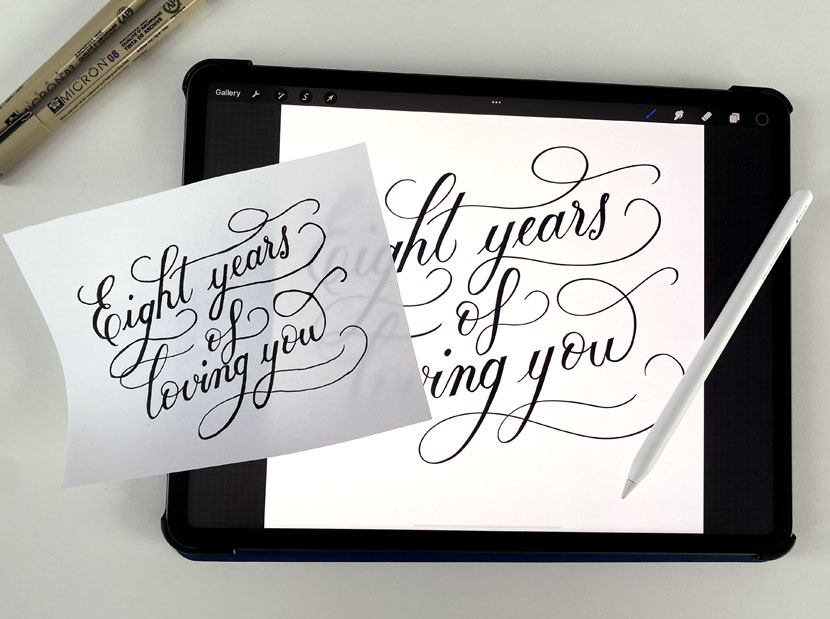 MICRON 08
Gallery
Eight years
of
loving you
ght years
of
ing you